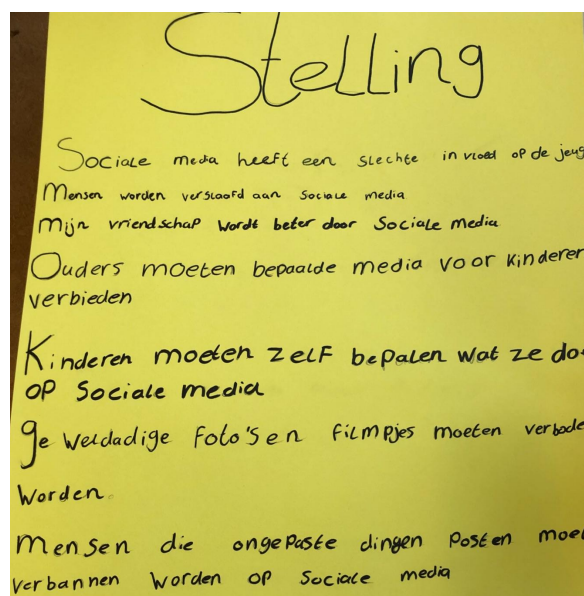 Stelling
Sociale media heeft een slechte in vloed op de jeug
Mensen worden verslaafd aan Sociale media
Mijn vriendschap wordt beter door Sociale media
Ouders moeten bepaalde media voor kinderen
verbieden
Kinderen moeten zelf bepalen wat ze do
op Sociale media
ge weldadige foto's en filmpjes moeten verbode
worden.
Mensen die ongepaste dingen posten moe
verbannen worden op Sociale media